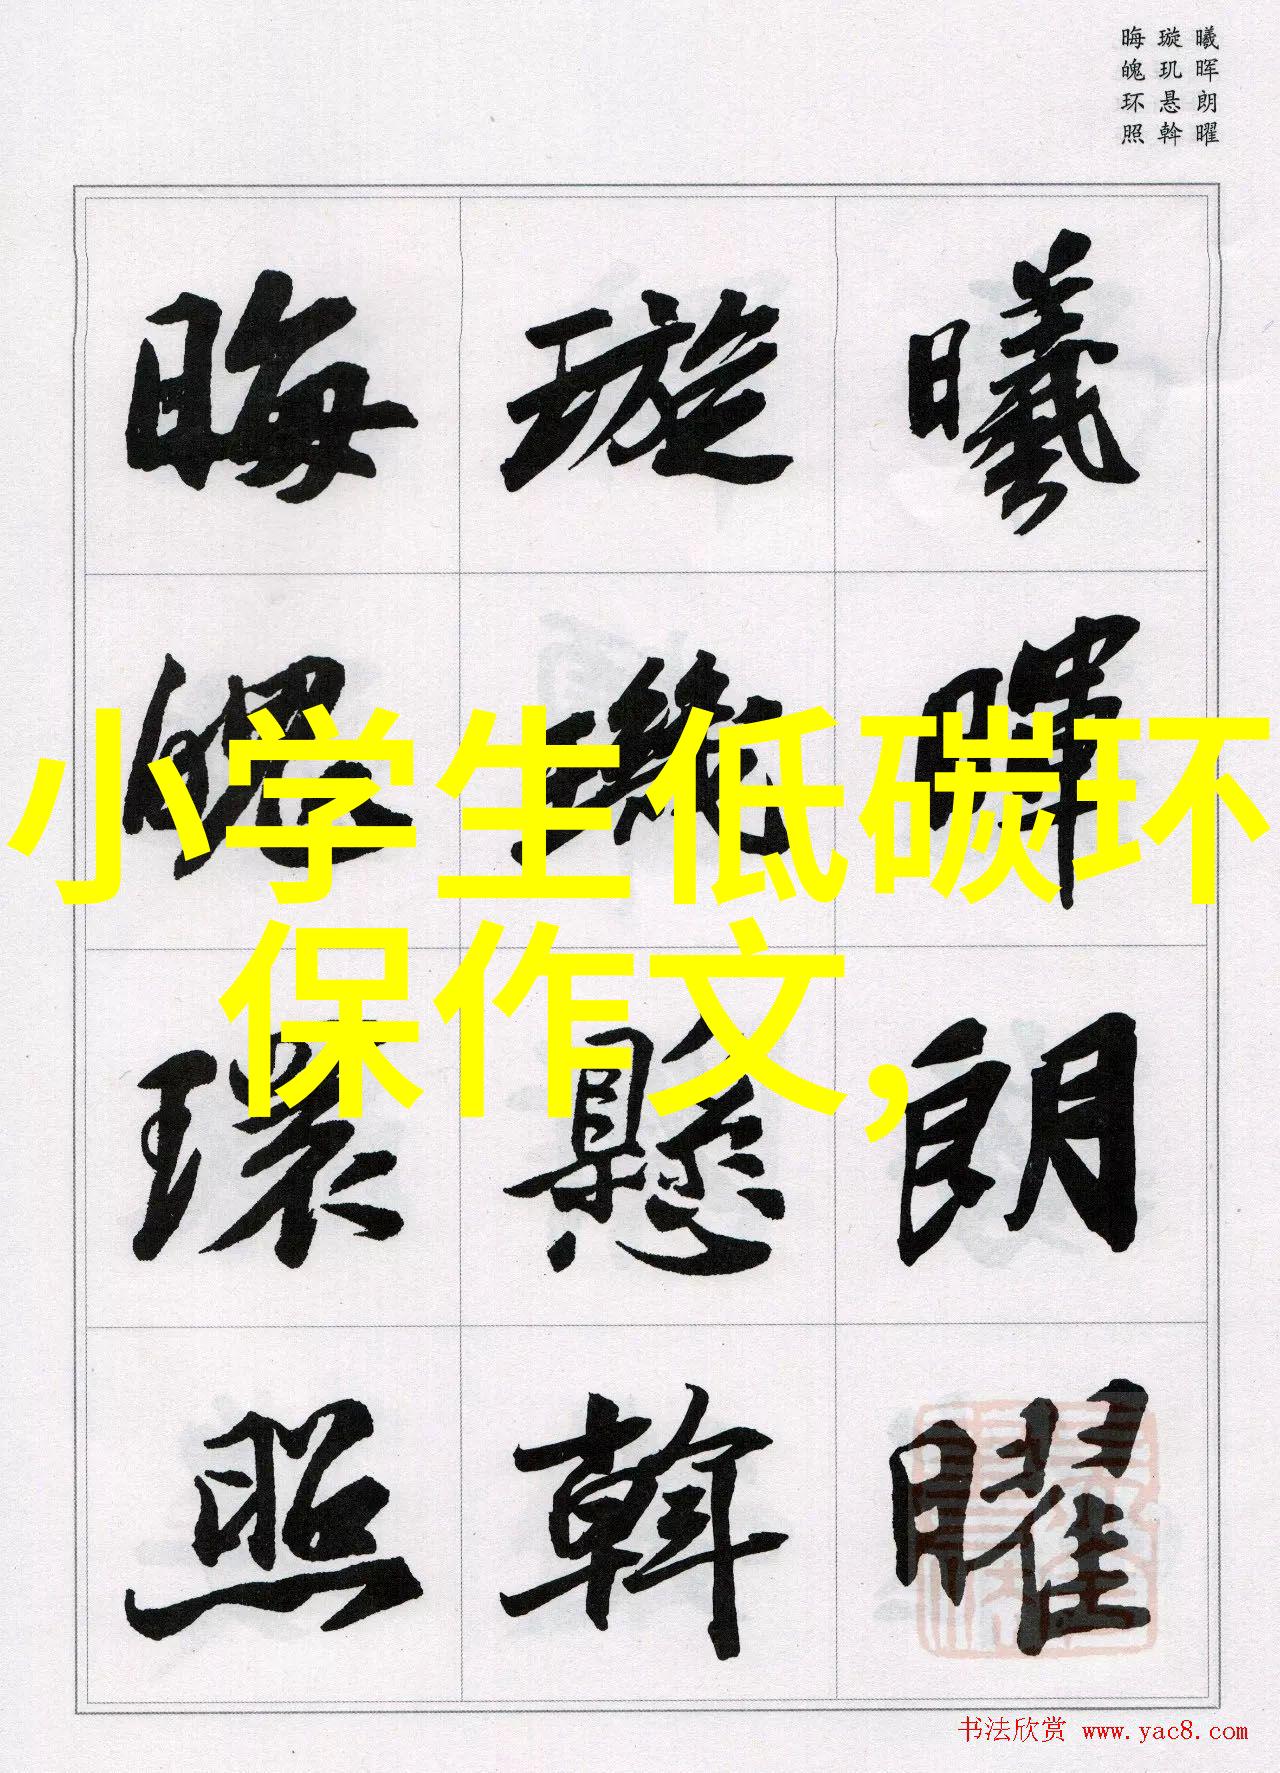 曦晖朗曜
璇玑悬斡
晦魄环照
曦暉朗曜
璇璣懸斡
晦魄環照
小学生低碳环
保作文,
书法欣赏 www.yac8.com